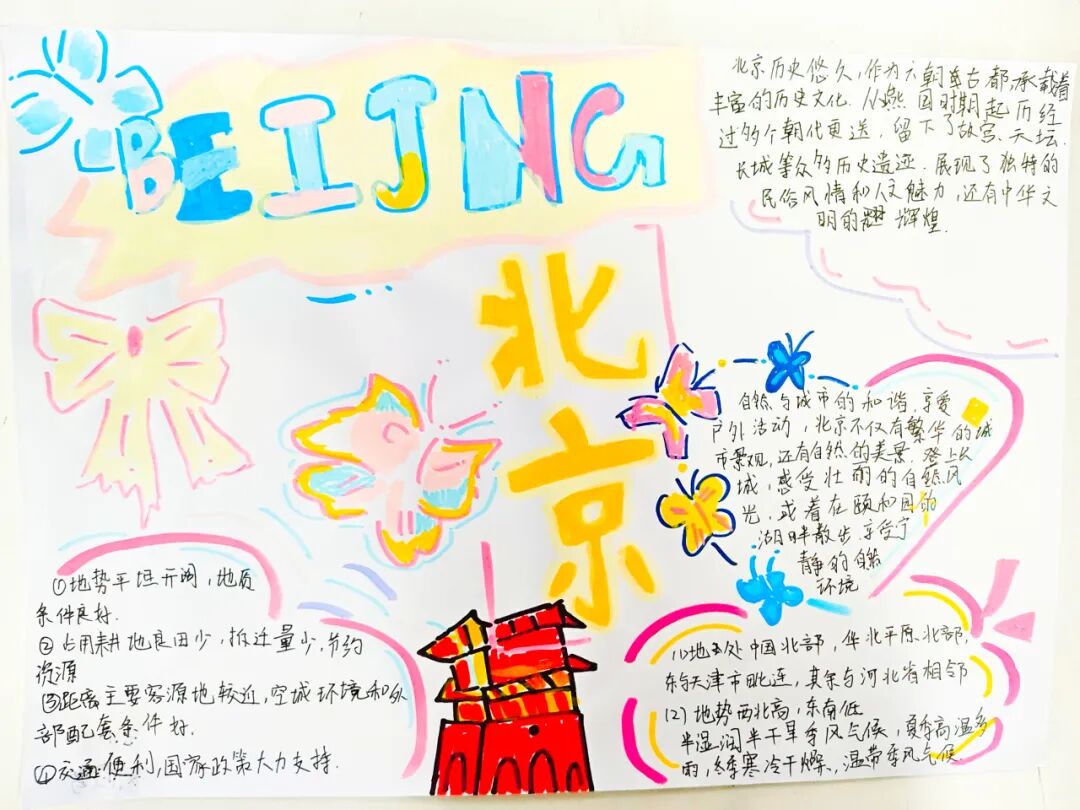 BEIJNG
北京历史悠久，作为六朝古都，承载着
丰富的历史文化．从燕国时期起历经
过多个朝代更迭，留下了故宫、天坛、
长城等众多历史遗迹．展现了独特的
民俗风情和人文魅力，还有中华文
明的 辉煌．
北
京
自然与城市的和谐，享爱
户外活动，北京不仅有繁华的城
市景观，还有自然的美景．登上长
城，感受壮丽的自然风
光，或着在颐和园的
湖畔散步，享受宁
静的自然
环境
①地势平坦开阔，地质
条件良好．
②占用耕地良田少，拆迁量少，节约
资源
③距离主要客源地较近，空域环境和外
部配套条件好．
④交通便利，国家政策大力支持．
(1)地处中国北部，华北平原北部，
东与天津市毗连，其余与河北省相邻
(2)地势西北高，东南低
半湿润半干旱季风气候，夏季高温多
雨，冬季寒冷干燥，温带季风气候．